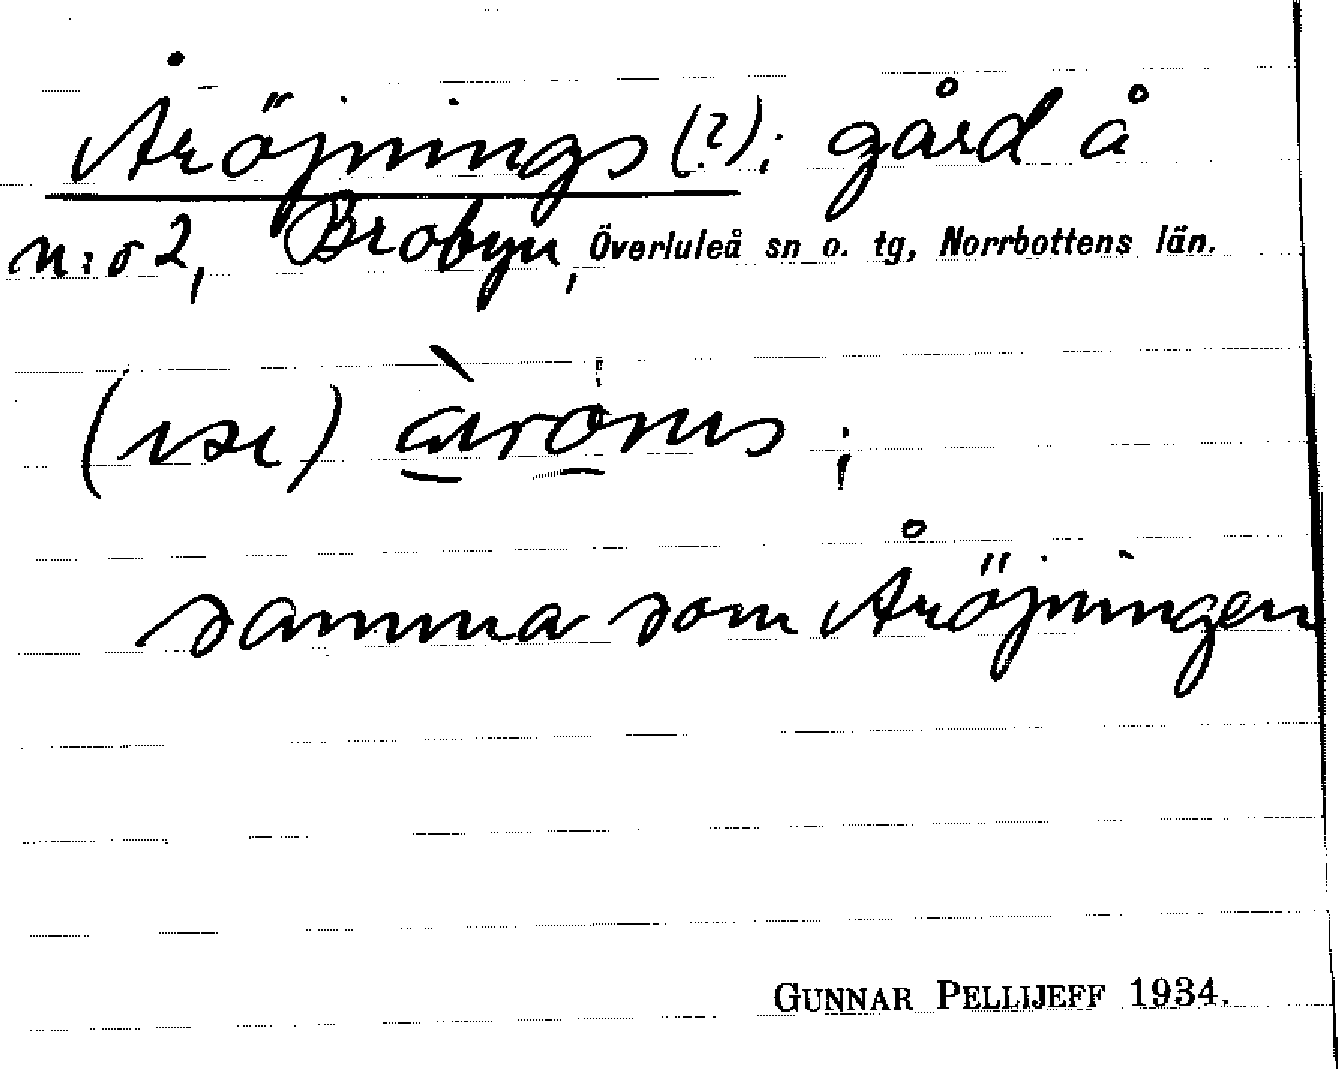 Åröjnings (?); gård å
n:o 2, Brobyn, Överluleå sn o. tg, Norrbottens län.
samma som Åröjningen
GUNNAR PELLIJEFF 1934.